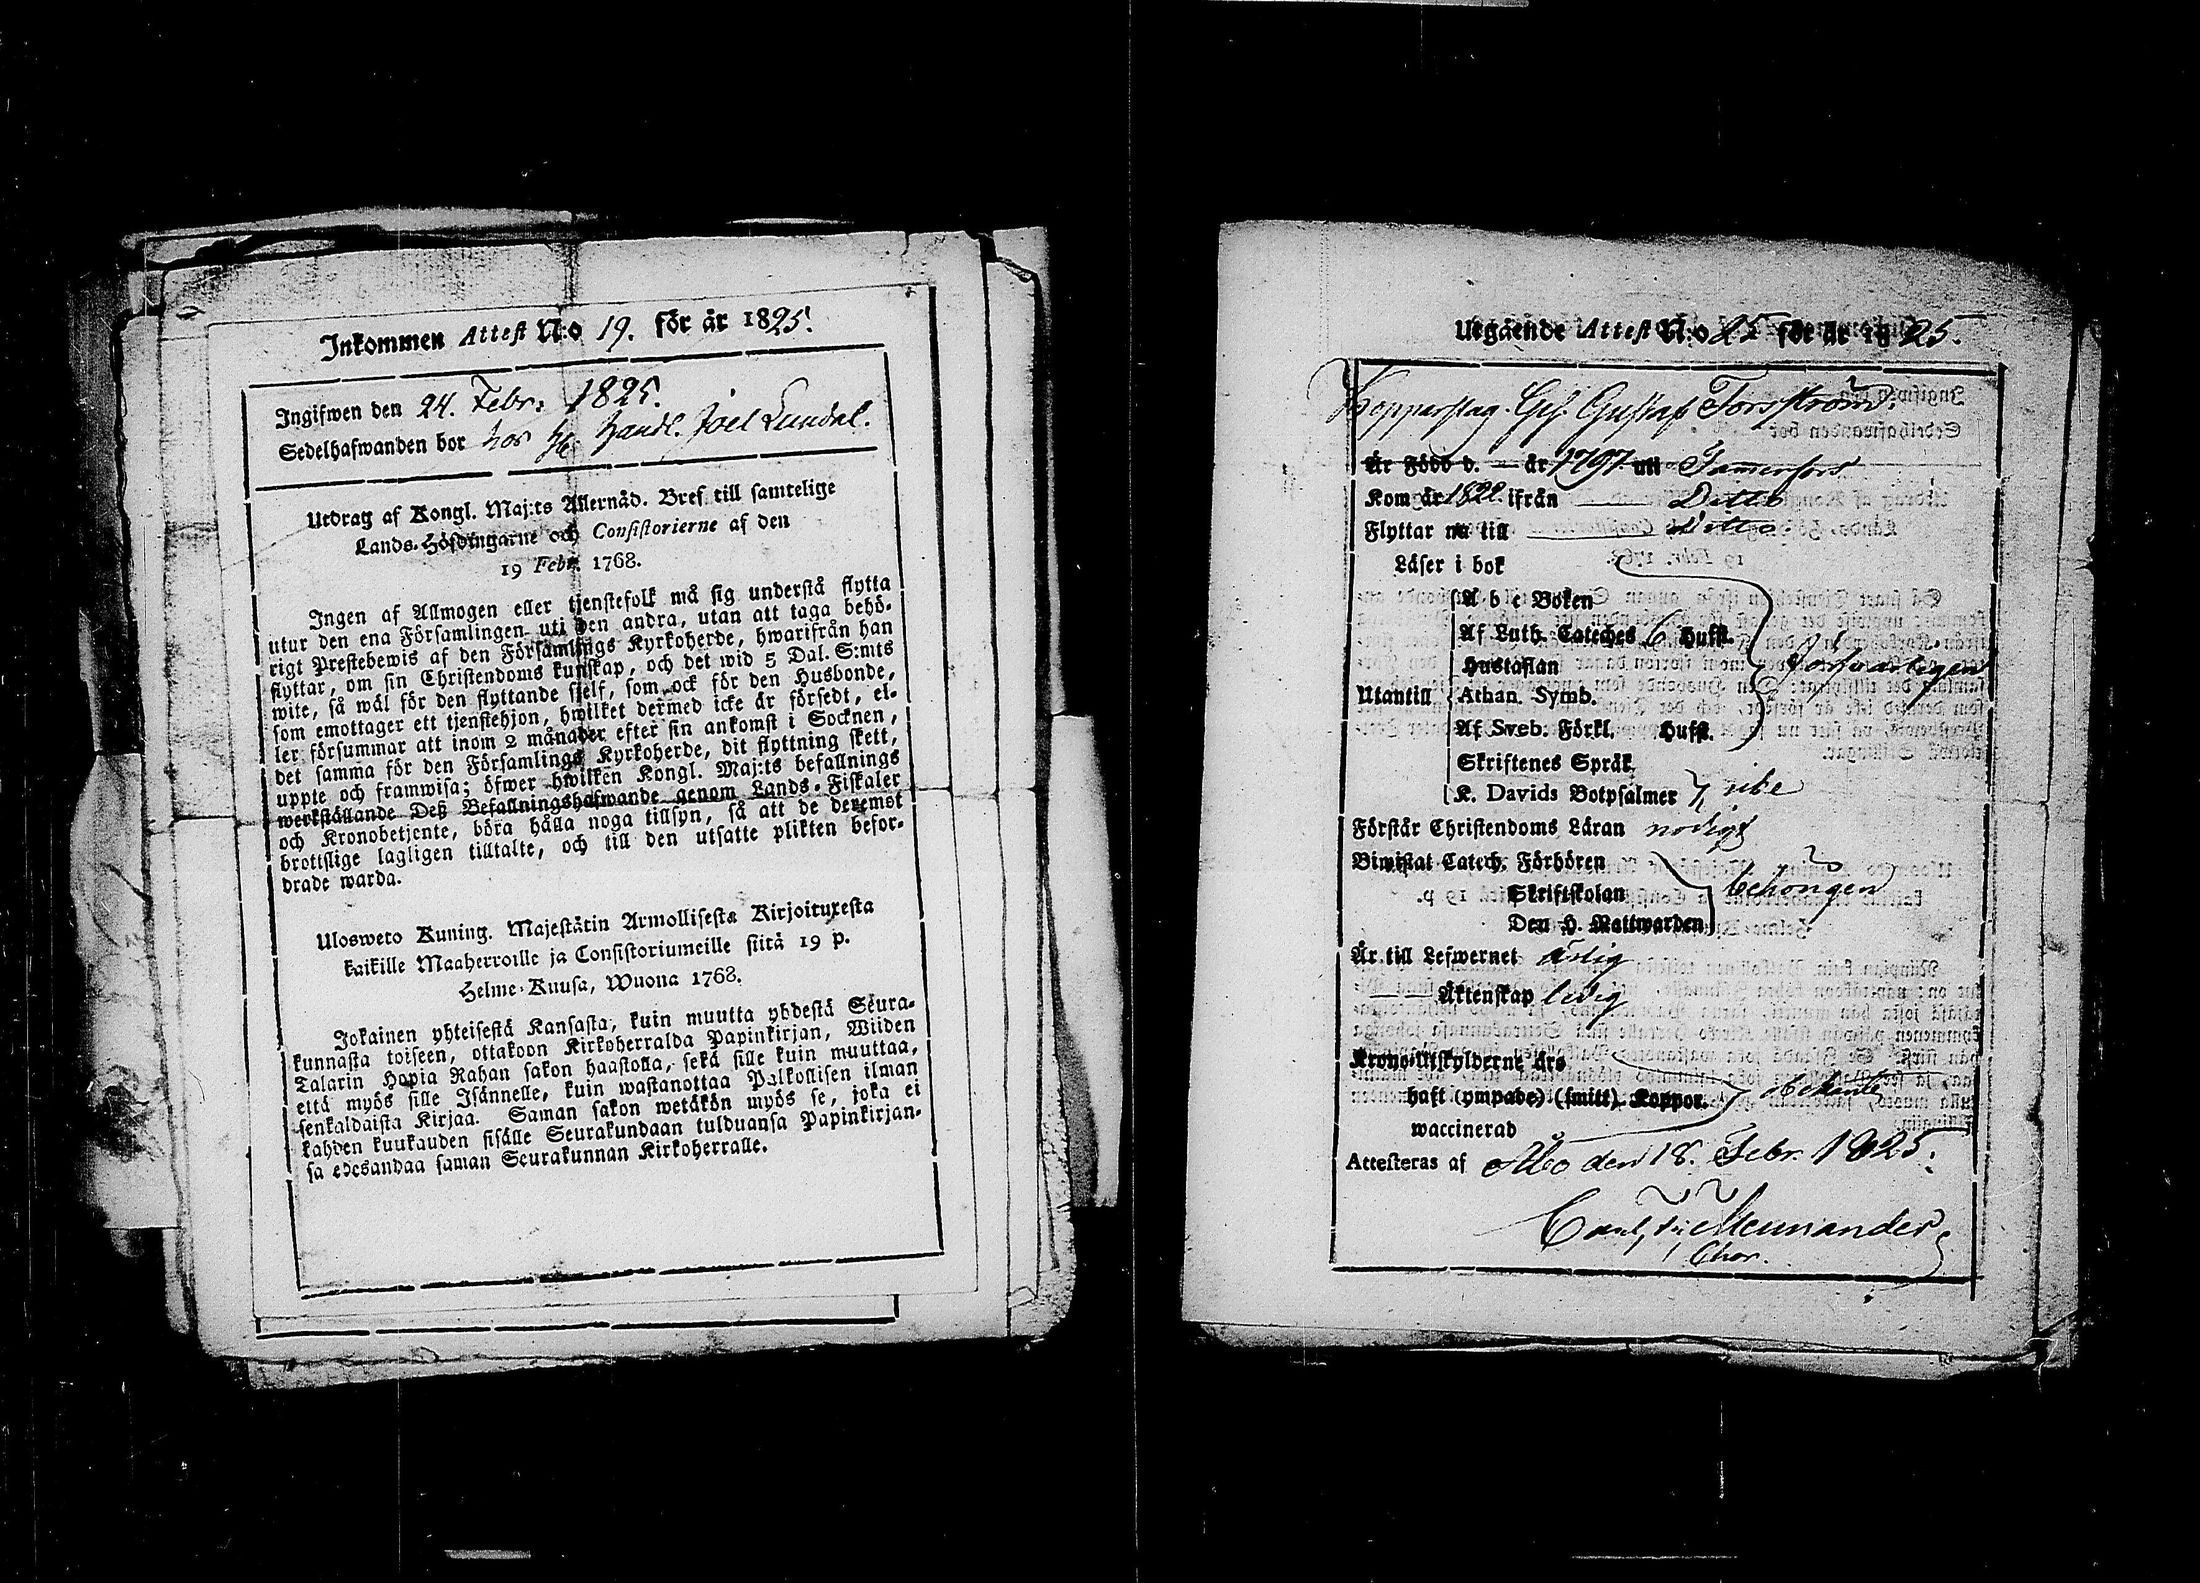 Inkommen Attest N:o 19. för år 1825.
Ingifwen den 24. Febr. 1825.
Sedelhafwanden bor hos Handl. Joel Lundal.
Utdrag af Kongl. Maj:ts Allernåd. Bref till samtelige
Lands-Höfdingarne och Consistorierne af den
19 Febr. 1768.
Ingen af Allmogen eller tjenstefolk må sig understå flytta
utur den ena Församlingen uti den andra, utan att taga behö-
rigt Prestebewis af den Församlings Kyrkoherde, hwarifrån han
flyttar, om sin Christendoms kunskap, och det wid 5 Dal. S:mts
wite, så wäl för den flyttande sjelf, som ock för den Husbonde,
som emottager ett tjenstehjon, hwilket dermed icke är försedt, el-
ler försummar att inom 2 månader efter sin ankomst i Socknen,
det samma för den Församlings Kyrkoherde, dit flyttning skett,
uppte och framwisa; öfwer hwilken Kongl. Maj:ts befallnings
werkställande Deß Befallningshafwande genom Lands-Fiskaler
och Kronobetjente, böra hålla noga tillsyn, så att de deremot
brottslige lagligen tilltalte, och till den utsatte plikten befor-
drade warda.
Ulosweto Kuning. Majestätin Armollisesta Kirjoituxesta
kaikille Maaherroille ja Consistoriumeille siitä 19 p.
Helme-Kuusa, Wuona 1768.
Jokainen yhteisestä Kansasta, kuin muutta yhdestä Seura-
kunnasta toiseen, ottakoon Kirkoherralda Papinkirjan, Wiiden
Talarin Hopia Rahan sakon haastolla, sekä sille kuin muuttaa,
että myös sille Isännelle, kuin wastanottaa Palkollisen ilman
senkaldaista Kirjaa. Saman sakon wetäkön myös se, joka ei
kahden kuukauden sisälle Seurakundaan tulduansa Papinkirjan-
sa edesandaa saman Seurakunnan Kirkoherralle.
Utgående Attest N:o 25 för år 1825.
Kopparslag. Ges. Gustaf Forsström.
Är Född d. — år 1797 uti Tammerfors
Kom år 1822 ifrån — Ditto
Flyttar nu till — Ditto
Läser i bok
A b c Boken
Af Luth. Cateches 6 Hufst.
Hustaflan
Utantill Athan. Symb.
Af Sveb. Förkl. Hufst.
Skriftenes Språk
K. Davids Botpsalmer icke
försvarligen
Förstår Christendoms Läran nödigt
Biwistat Catech. Förhören
Skriftskolan
Den H. Nattwarden
behörigen
Är till Lefwernet ärlig
— Äktenskap ledig
Krono-Utskylderne års
haft (ympade) (smitt) Koppor.
waccinerad
Attesteras af Åbo den 18. Febr. 1825.